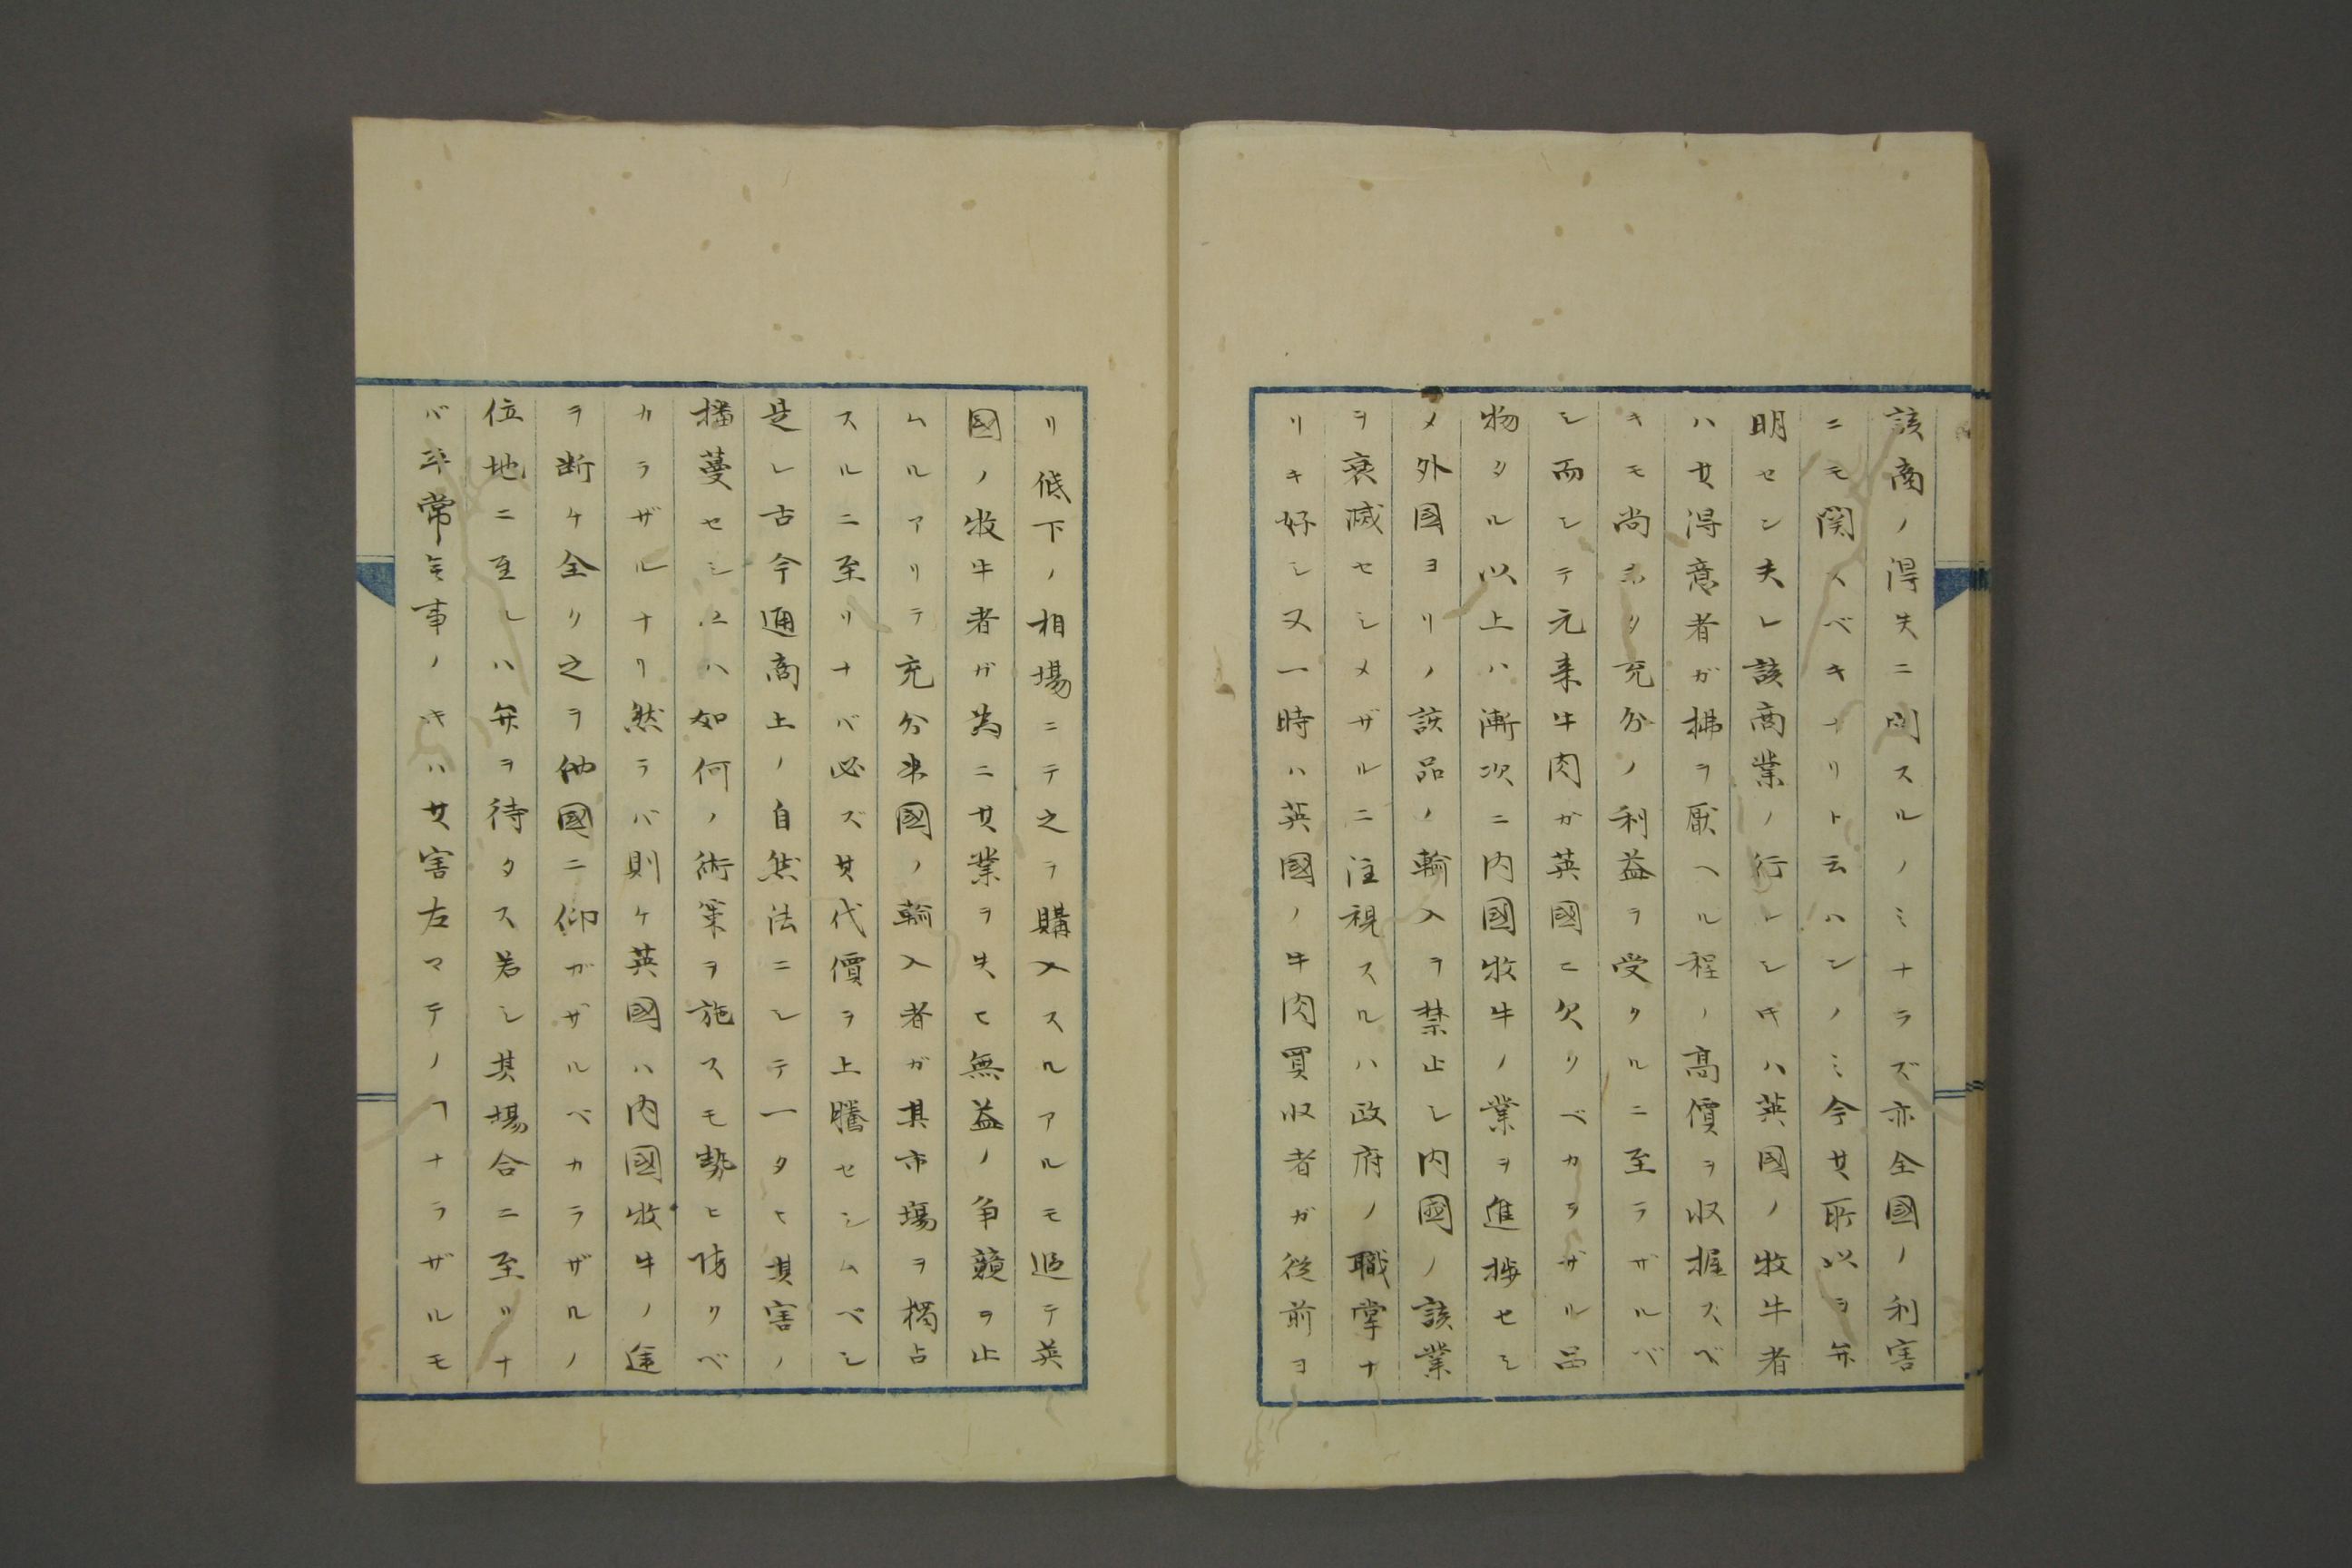 該商ノ得失ニ関スルノミナラズ亦全國ノ利害
ニモ関スベキナリト云ハンノミ今其所以ヲ弁
明セン夫レ該商業ノ行レシキハ英國ノ牧牛者
ハ其得意者ガ拂ヲ厭ヘル程ノ高價ヲ収握スベ
キモ尚ホタ充分ノ利益ヲ受クルニ至ラザルベ
シ而シテ元来牛肉ガ英國ニ欠クベカラザル品
物タル以上ハ漸次ニ内國牧牛ノ業ヲ進捗セシ
メ外國ヨリノ該品ノ輸入ヲ禁止シ内國ノ該業
ヲ衰滅セシメザルニ注視スルハ政府ノ職掌ナ
リキ好シ又一時ハ英國ノ牛肉買収者ガ從前ヨ
リ低下ノ相場ニテ之ヲ購入スルアルモ追テ英
國ノ牧牛者ガ為ニ其業ヲ失ヒ無益ノ争競ヲ止
ムルアリテ充分米國ノ輸入者ガ其市場ヲ獨占
スルニ至リナバ必ズ其代價ヲ上騰セシムベシ
是レ古今通商上ノ自然法ニシテ一タヒ其害ノ
播蔓セシ上ハ如何ノ術策ヲ施スモ勢ヒ防クベ
カラザルナリ然ラバ則ケ英國ハ内國牧牛ノ途
ヲ断ケ全ク之ヲ他國ニ仰ガザルベカラザルノ
位地ニ至レハ弁ヲ待タス若シ其場合ニ至リナ
バ平常無事ノキハ其害左マテノヿナラザルモ